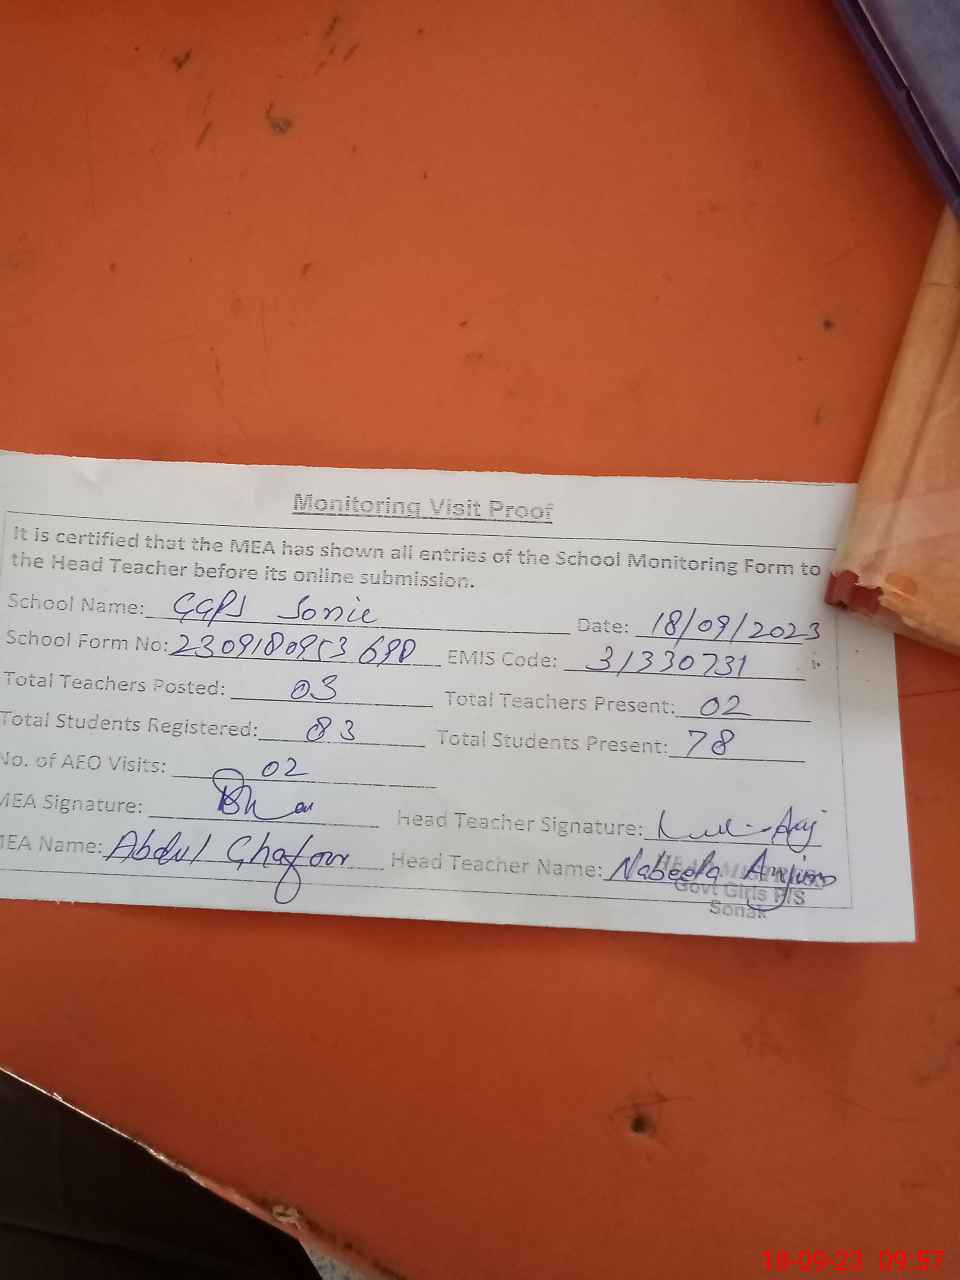 Monitoring Visit Proof
It is certified that the MEA has shown all entries of the School Monitoring Form to
the Head Teacher before its online submission.
School Name: GGPS Sonic Date: 18/09/2023
School Form No: 2309180953690 EMIS Code: 31330731
Total Teachers Posted: 03 Total Teachers Present: 02
Total Students Registered: 83 Total Students Present: 78
No. of AEO Visits: 02
MEA Signature: Head Teacher Signature:
MEA Name: Abdul Ghafour Head Teacher Name: Nabeela Anjum
Govt Girls P/S
Sonak
18-09-23 09:57